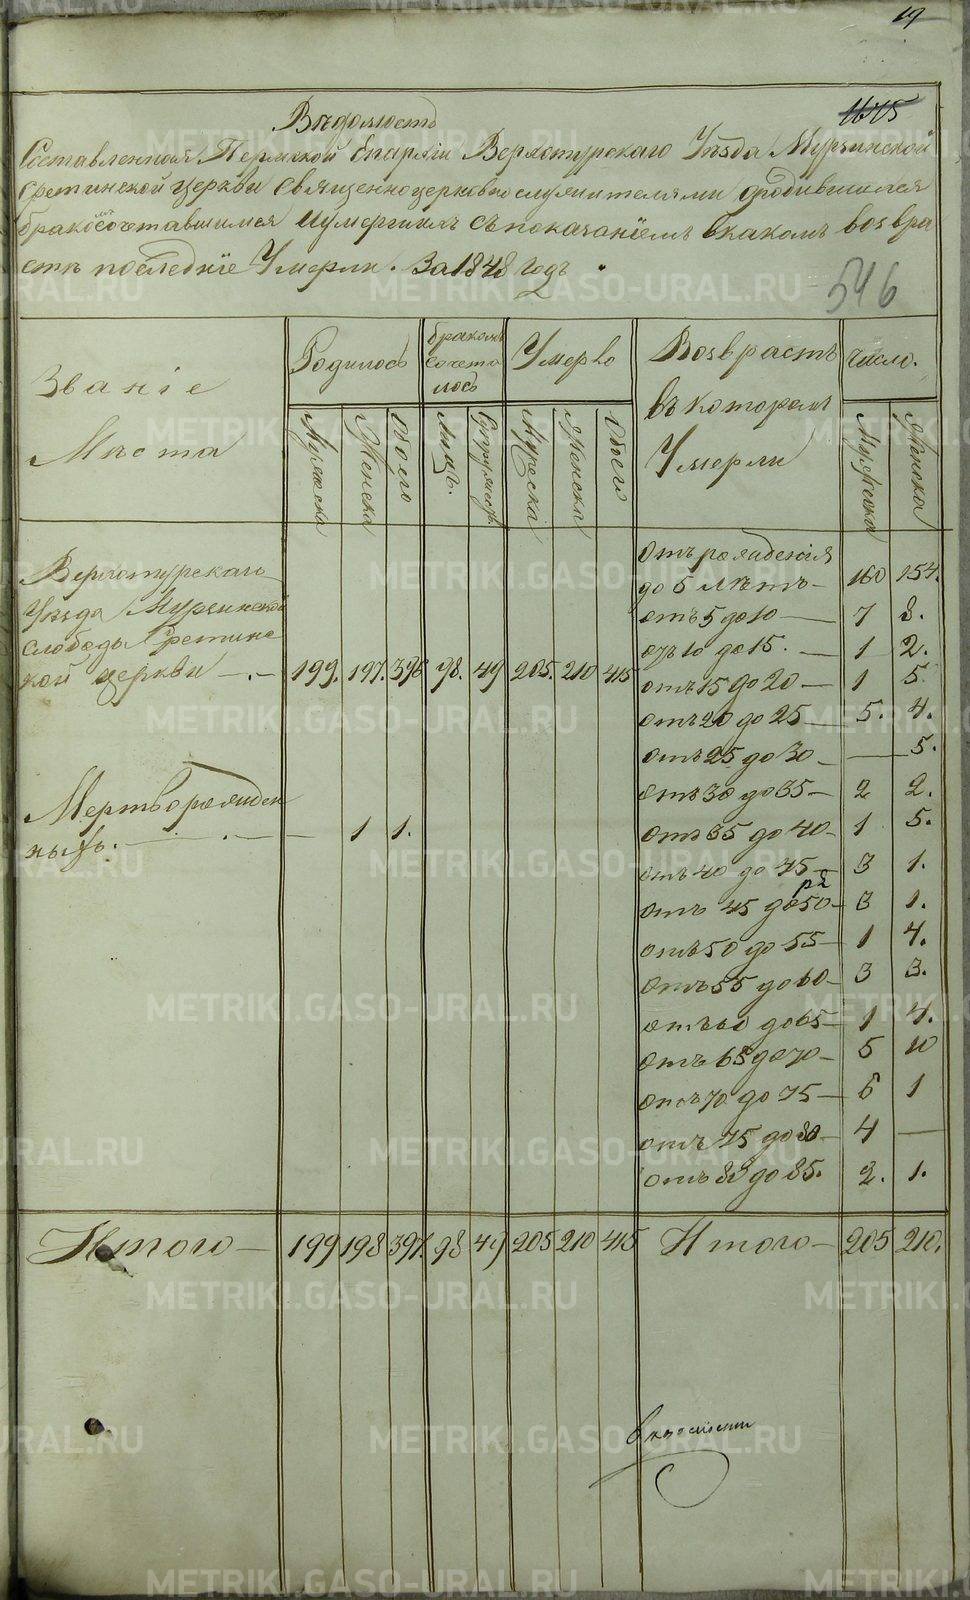 19
1675
Вѣдомость
Составленная Пермской Епархіи Верхотурскаго Уѣзда Мурзинской
Сретинской церкви Священноцерковнослужителями ородившихся
бракосочетавшимся иумершихъ съпоказаніемъ вкакомъ возвра
стѣ последніе Умерли. За 1848 годъ
546
Званіе
Мѣста
Родилось
Мужеска
Женска
Обоего
бракомъ
сочета
лось
лицъ.
Супружествъ
Умерло
Мужеска
Женска
Обоего
Возврастъ
въ котором
Умерли
число.
Мужеска
Женска
Верхотурскаго
Уѣзда Мурзинской
слободы Сретинс
кой церкви — . — 199. 197. 396 98. 49 205. 210 415
Мертворожден
ныхъ. — . — — 1 1.
Отъ рожденія
до 5 лѣтъ — 160 154.
отъ 5 до 10 — 7 8.
отъ 10 до 15. — 1 2.
отъ 15 до 20 — 1 5.
отъ 20 до 25 — 5. 4.
отъ 25 до 30 — — 5.
отъ 30 до 35 — 2 2.
отъ 35 до 40 — 1 5.
отъ 40 до 45 — 3 1.
отъ 45 до 50 — 3 1.
отъ 50 до 55 — 1 4.
отъ 55 до 60 — 3 3.
отъ 60 до 65 — 1 4.
отъ 65 до 70 — 5 10
отъ 70 до 75 — 6 1
отъ 75 до 80 — 4 —
отъ 80 до 85. 2. 1.
Итого — 199 198 397. 98 49 205 210 415 Итого — 205 210.
METRIKI.GASO-URAL.RU